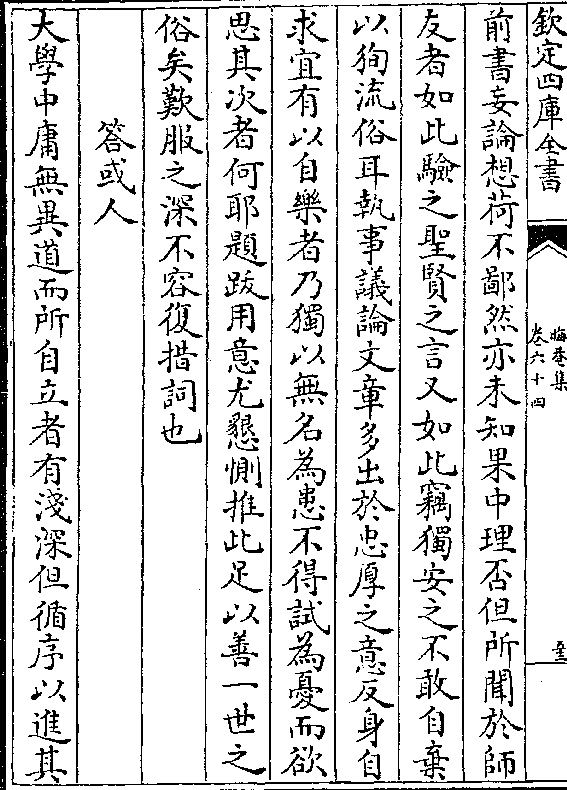 欽定四庫全書
晦菴集
卷六十四
前書妄論想荷不鄙然亦未知果中理否但所聞於師
友者如此驗之聖賢之言又如此竊獨安之不敢自棄
以狥流俗耳執事議論文章多出於忠厚之意反身自
求宜有以自樂者乃獨以無名為患不得試為憂而欲
思其次者何耶題跋用意尤懇惻推此足以善一世之
俗矣歎服之深不容復措詞也
答或人
大學中庸無異道而所自立者有淺深但循序以進其